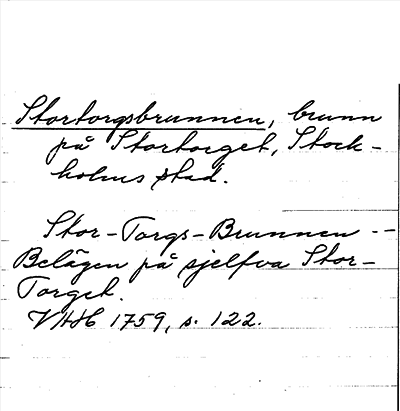 Stortorgsbrunnen, brunn
på Stortorget, Stock-
holms stad.
Stor-Torgs-Brunnen --
Belägen på sjelfva Stor-
Torget.
VHH 1759, s. 122.